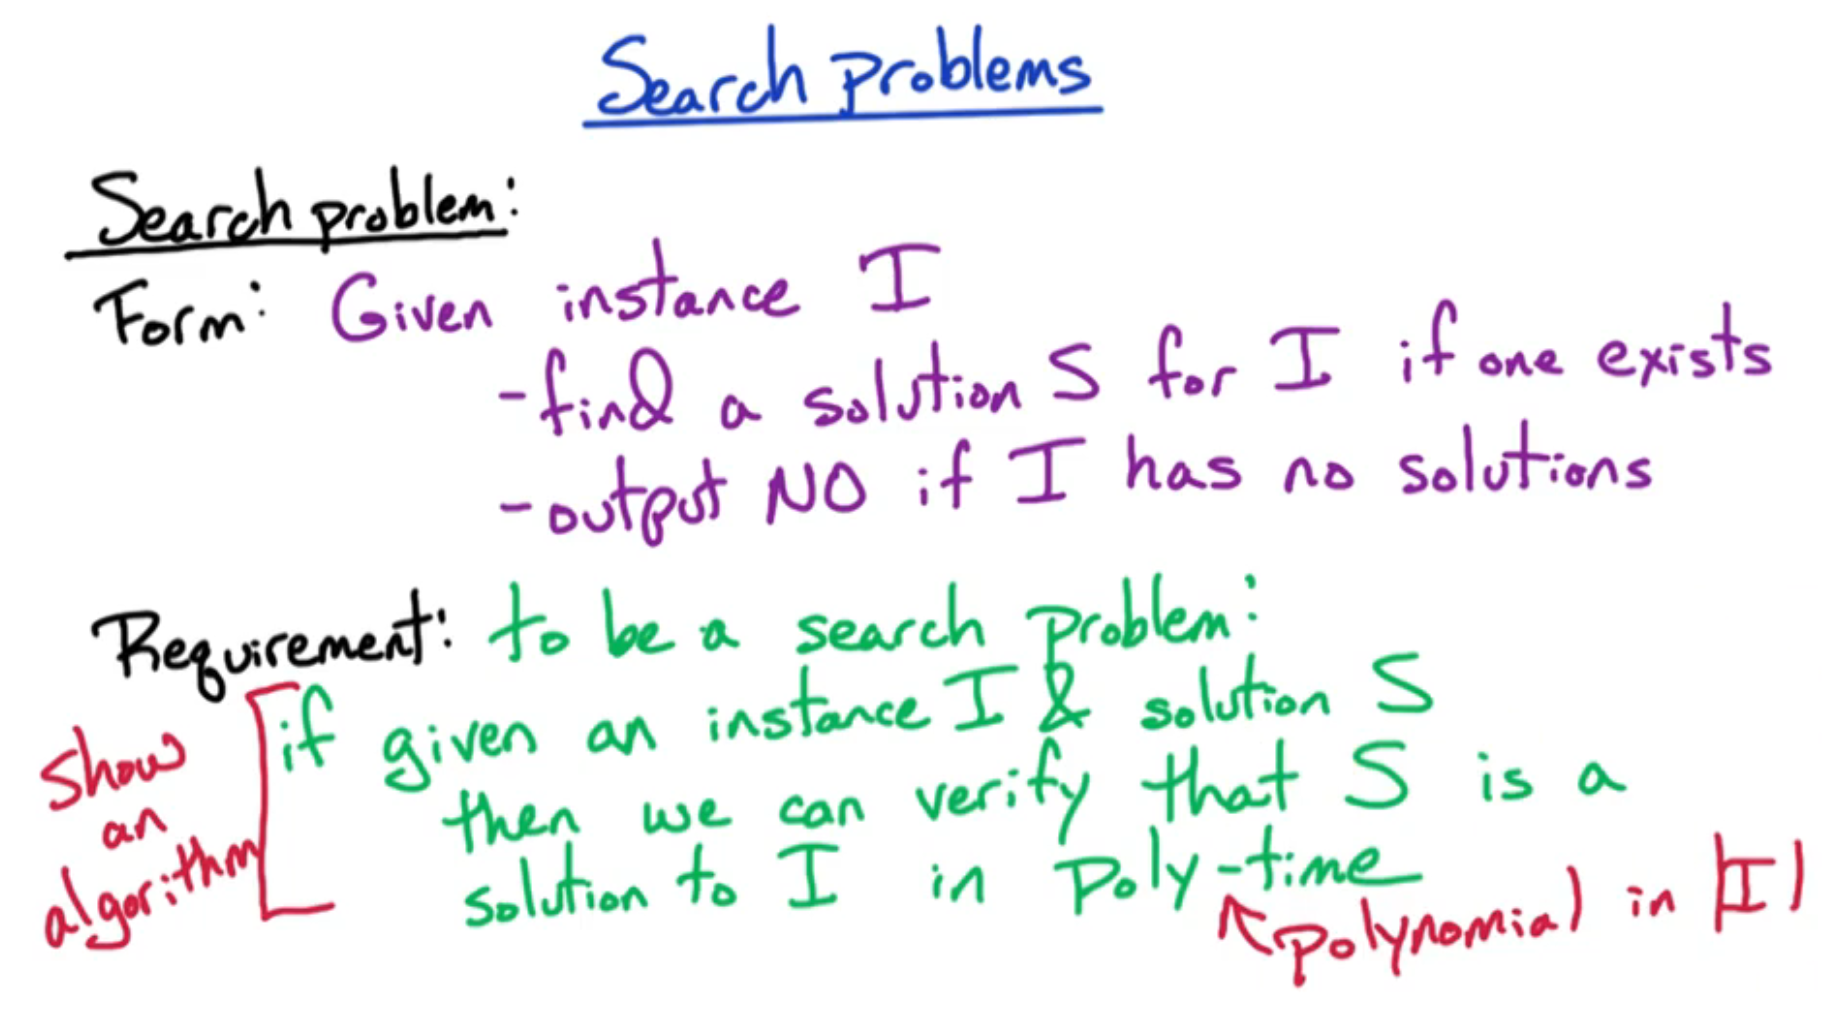 Search problems
Search problem:
Form: Given instance I
-find a solution S for I if one exists
-output NO if I has no solutions
Requirement: to be a search problem:
if given an instance I & solution S
then we can verify that S is a
solution to I in poly-time
polynomial in |I|
show
an
algorithm